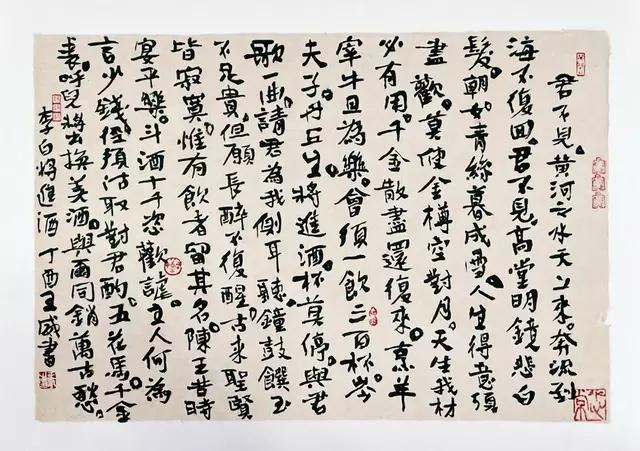 君不見。黃河之水天上來。奔流到
海不復回。君不見。高堂明鏡悲白
髮。朝如青絲暮成雪。人生得意須
盡歡。莫使金樽空對月。天生我材
必有用。千金散盡還復來。烹羊
宰牛且為樂。會須一飲三百杯。岑
夫子。丹丘生。將進酒。杯莫停。與君
歌一曲。請君為我側耳聽。鐘鼓饌玉
不足貴。但願長醉不復醒。古來聖賢
皆寂寞。惟有飲者留其名。陳王昔時
宴平樂。斗酒十千恣歡謔。主人何為
言少錢。徑須沽取對君酌。五花馬。千金
裘。呼兒將出換美酒。與爾同銷萬古愁。
李白將進酒 丁酉王威書